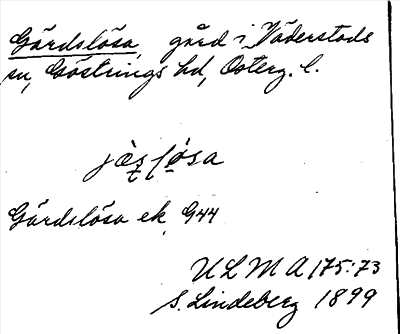 Gärdslösa, gård i Väderstads
sn, Göstrings hd, Österg. l.
jæ̀ʂlo̱sa
Gärdslösa ek, G44
ULMA 175:73
S. Lindeberg 1899